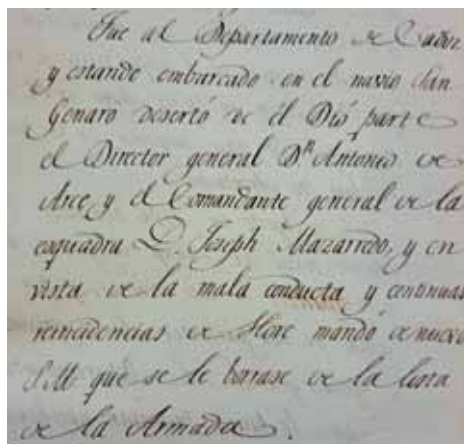 Fue al Departamento de Cadiz
y estando embarcado en el navio San
Genaro desertó de él Dió parte
el Director general Dn. Antonio de
Arce, y el Comandante general de la
esquadra D. Joseph Mazarredo, y en
vista de la mala conducta y continuas
reincidencias de mandó de nuevo
S.M. que se le borase de la lista
de la Armada.